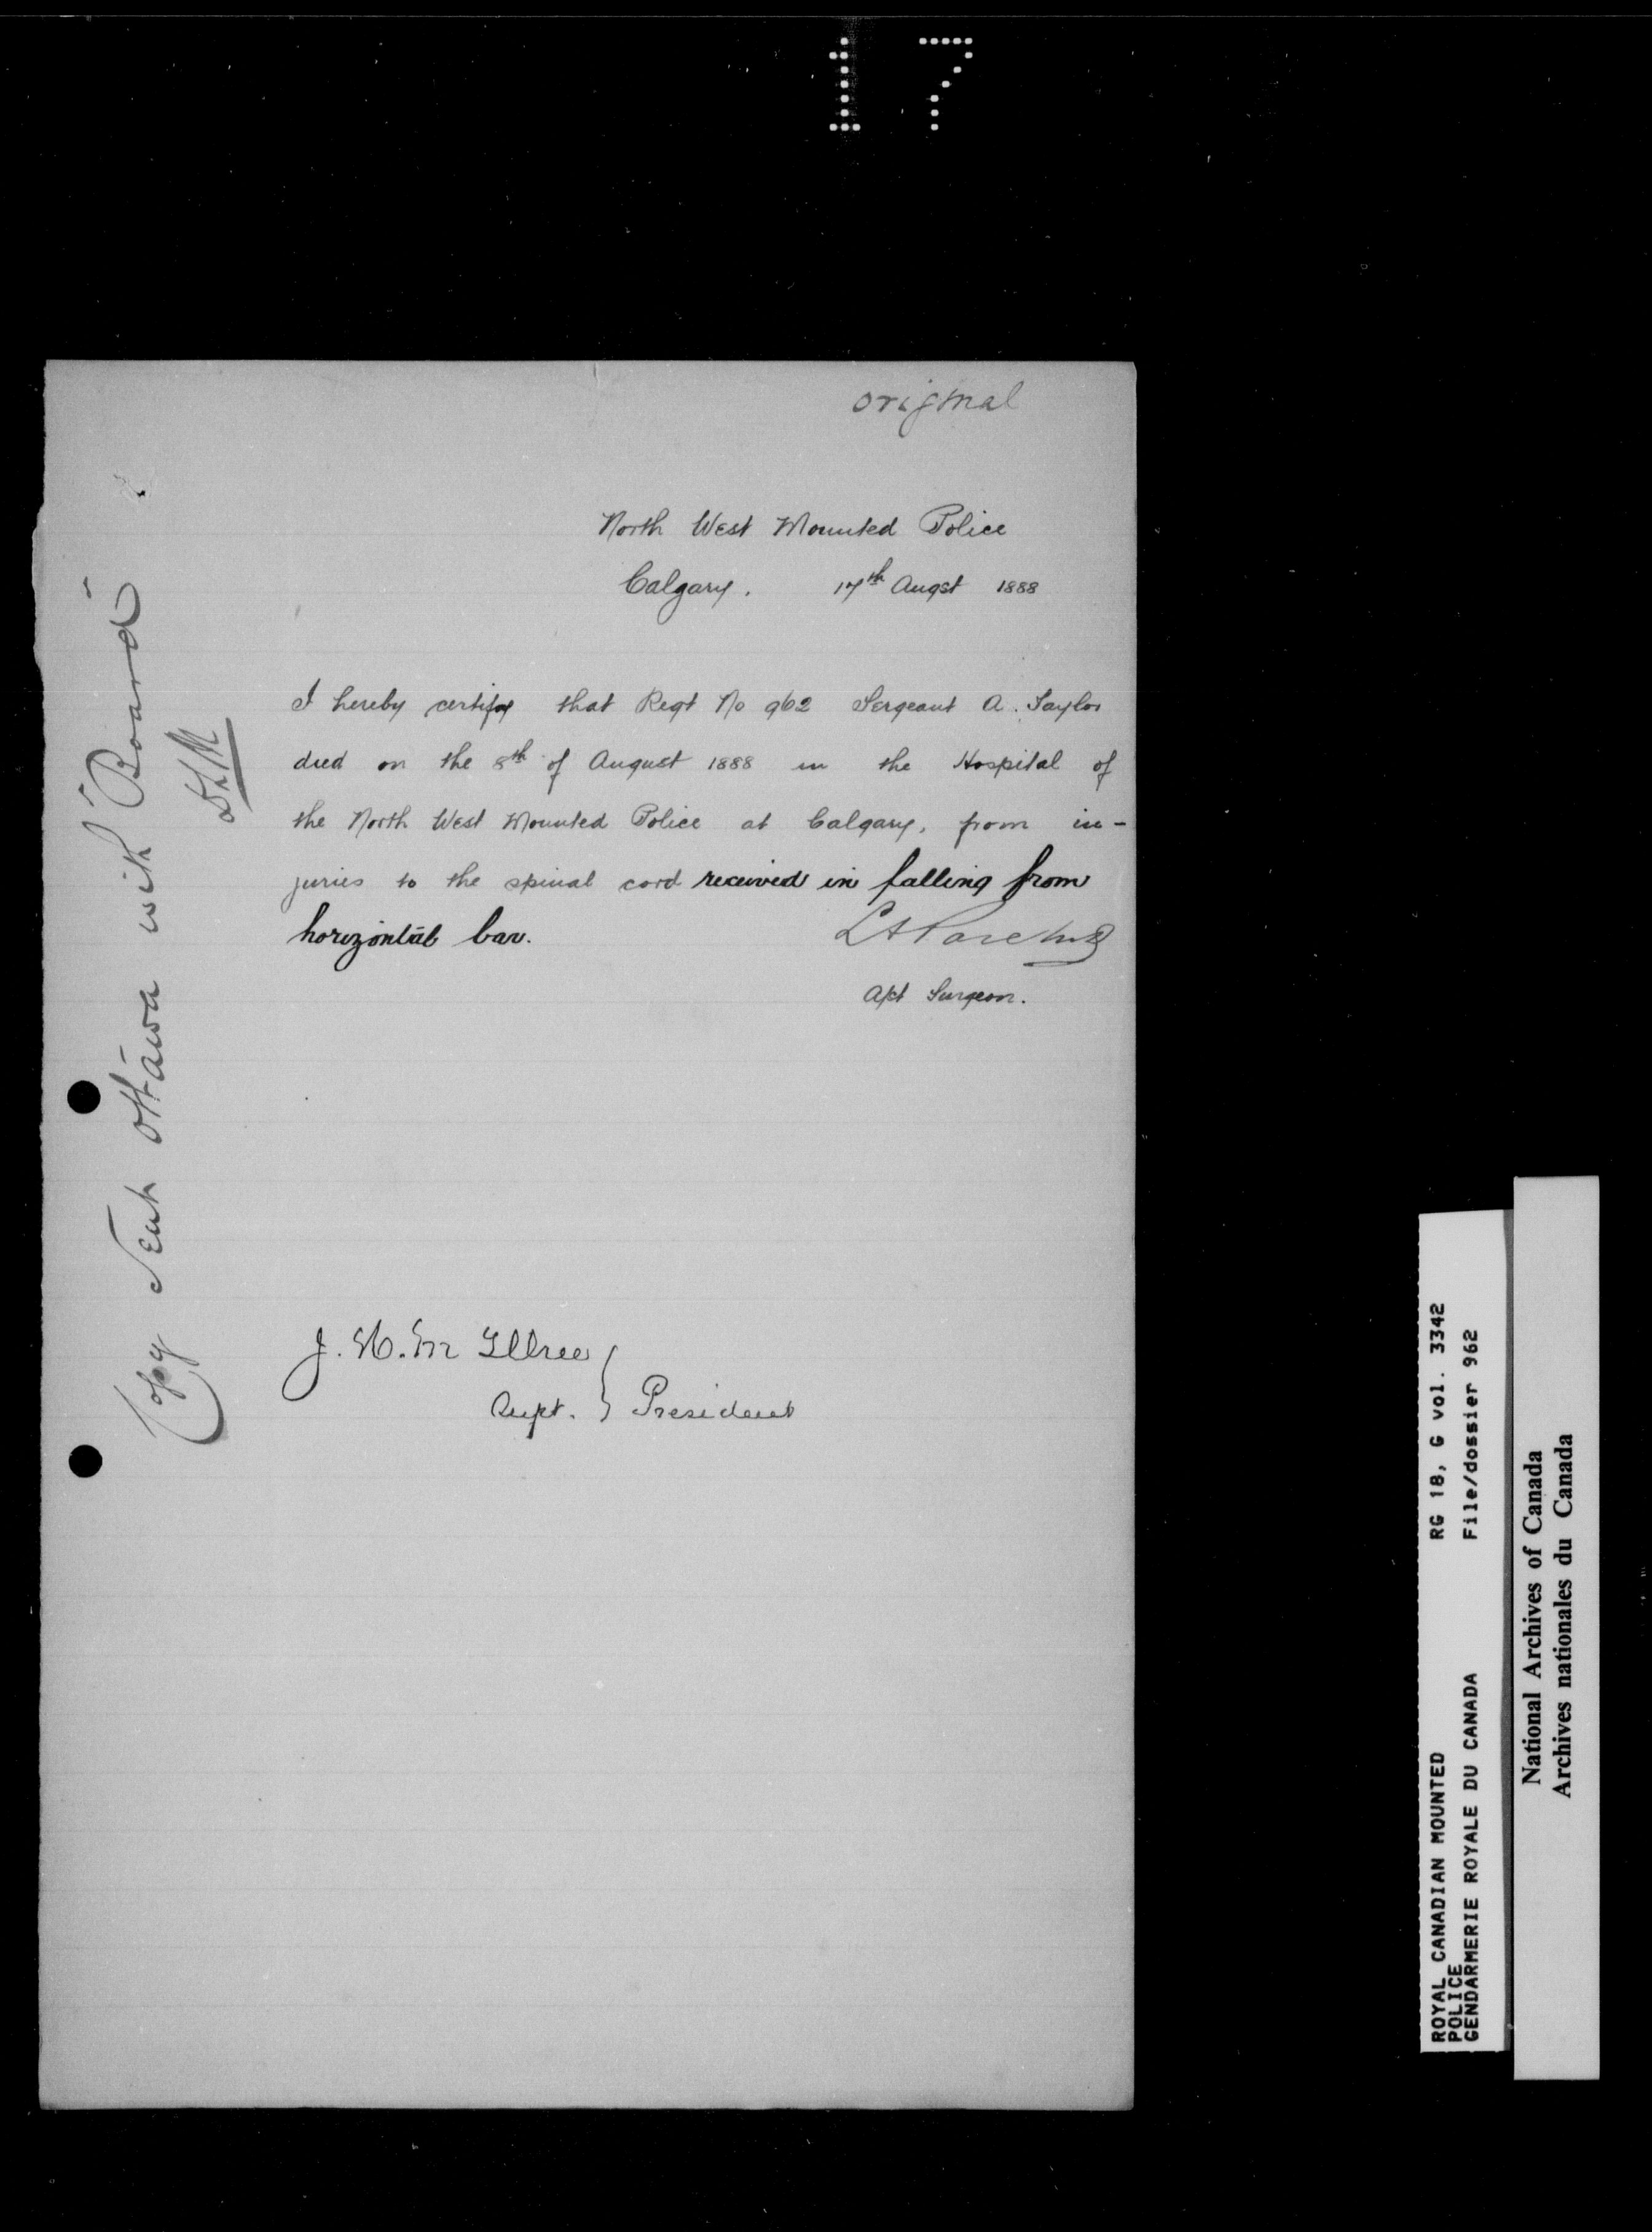 17
original
North West Mounted Police
Calgary. 17th Augst 1888
I hereby certify that Regt No 962 Sergeant A. Taylor
died on the 8th of August 1888 in the Hospital of
the North West Mounted Police at Calgary, from in-
juries to the spinal cord received in falling from
horizontal bar.
L A Pare
A/st Surgeon.
J. H. McIllree
Supt. } President
Copy sent Ottawa with "Board"
ROYAL CANADIAN MOUNTED
POLICE
GENDARMERIE ROYALE DU CANADA
RG 18, G vol. 3342
File/dossier 962
National Archives of Canada
Archives nationales du Canada